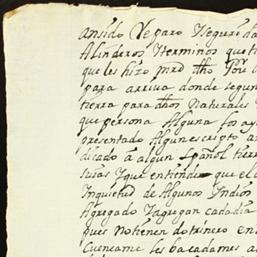 ansido Reparo Y seguri da
Alinderos Yterminos que ti
que les hizo mrd dho Jou
para arriva donde segun
tierra para dhos Naturales
que persona Alguna los ay
presentado Algun escripto a
dicado a algun español tierr
suias Y que entiende que el
Inquietud de Algunos Indios
Agregado Y agregan cadadia
pues no tienen dotrinero en
Cuencame les ba cadames a